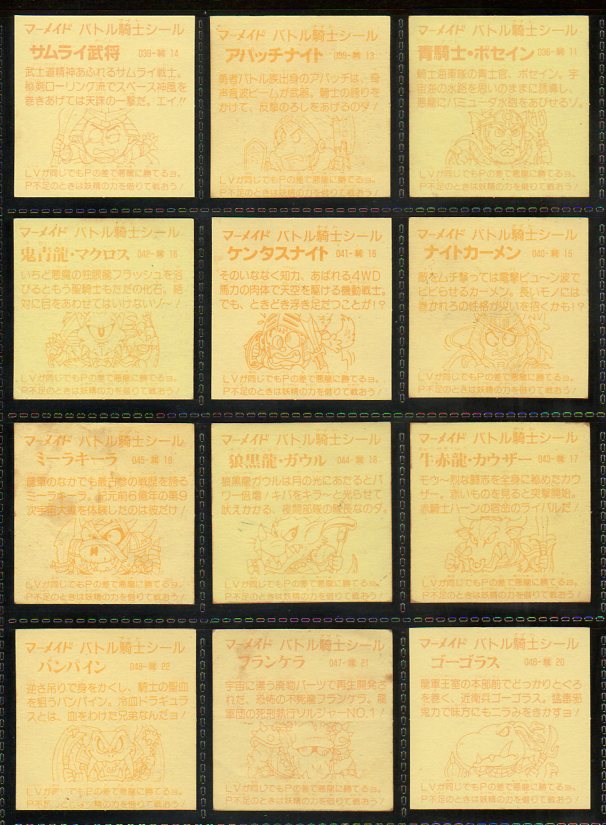 マーメイド バトル騎士シール
サムライ武将 039-騎 14
武士道精神あふれるサムライ戦士。
秘剣ローリング流でスペース神風を
巻きあげては天誅の一撃だ。エイ!!
LVが同じでもPの差で悪龍に勝てるヨ。
P不足のときは妖精の力を借りて戦おう!
マーメイド バトル騎士シール
アパッチナイト 038-騎 13
勇者バトル族出身のアパッチは、奇
声音波ビームが武器。騎士の誇りを
かけて、反撃のろしをあげるのダ!
LVが同じでもPの差で悪龍に勝てるヨ。
P不足のときは妖精の力を借りて戦おう!
マーメイド バトル騎士シール
青騎士・ポセイン 036-騎 11
騎士慈悪隊の青士官、ポセイン。宇
宙海の水路を思いのままに誘導し、
悪龍にバミューダ水砲をあびせるゾ。
LVが同じでもPの差で悪龍に勝てるヨ。
P不足のときは妖精の力を借りて戦おう!
マーメイド バトル騎士シール
鬼青龍・マクロス 042-魔 16
いちど悪魔の性眼龍フラッシュを浴
びるともう聖騎士もただの化石。絶
対に目をあわせてはいけないゾー!
LVが同じでもPの差で悪龍に勝てるヨ。
P不足のときは妖精の力を借りて戦おう!
マーメイド バトル騎士シール
ケンタスナイト 041-騎 16
そのいななく知力、あばれる4WD
馬力の肉体で天空を駆ける機動戦士。
でも、ときどき浮き足だつことが!?
LVが同じでもPの差で悪龍に勝てるヨ。
P不足のときは妖精の力を借りて戦おう!
マーメイド バトル騎士シール
ナイトカーメン 040-騎 15
敵をムチ撃っては電撃ビューン波で
とどらせるカーメン。長いモノには
まかれろの性格が災いを招くかも!?
LVが同じでもPの差で悪龍に勝てるヨ。
P不足のときは妖精の力を借りて戦おう!
マーメイド バトル騎士シール
ミーラキーラ 045-魔 19
龍軍のなかでも最古参の戦歴を誇る
ミーラキーラ。紀元前6億年の第9
次宇宙大戦を体験したのは彼だけ!
LVが同じでもPの差で悪龍に勝てるヨ。
P不足のときは妖精の力を借りて戦おう!
マーメイド バトル騎士シール
狼黒龍・ガウル 044-魔 18
狼黒龍ガウルは月の光にあたるとパ
ワー倍増!キバをキラ〜と光らせて
吠えかかる、夜間部隊の隊長なのダ。
LVが同じでもPの差で悪龍に勝てるヨ。
P不足のときは妖精の力を借りて戦おう!
マーメイド バトル騎士シール
牛赤龍・カウザー 043-魔 17
モウ〜烈な闘志を全身に秘めたカウ
ザー。赤いものを見ると突撃開始。
赤騎士ハーンの宿命のライバルだ!
LVが同じでもPの差で悪龍に勝てるヨ。
P不足のときは妖精の力を借りて戦おう!
マーメイド バトル騎士シール
バンパイン 048-魔 22
逆さ吊りで身をかくし、騎士の聖血
を狙うバンパイン。冷血ドラギュラ
スとは、血をわけた兄弟なんだョ!
LVが同じでもPの差で悪龍に勝てるヨ。
P不足のときは妖精の力を借りて戦おう!
マーメイド バトル騎士シール
フランケラ 047-魔 21
宇宙に漂う廃物パーツで再生開発さ
れた、恐怖の不死龍フランケラ。龍
軍団の死刑執行ソルジャーNO.1!
LVが同じでもPの差で悪龍に勝てるヨ。
P不足のときは妖精の力を借りて戦おう!
マーメイド バトル騎士シール
ゴーゴラス 046-魔 20
龍軍王室の本部前でどっかりとぐろ
を巻く、近衛兵ゴーゴラス。猛毒邪
鬼力で味方にもニラみをきかすョ!
LVが同じでもPの差で悪龍に勝てるヨ。
P不足のときは妖精の力を借りて戦おう!